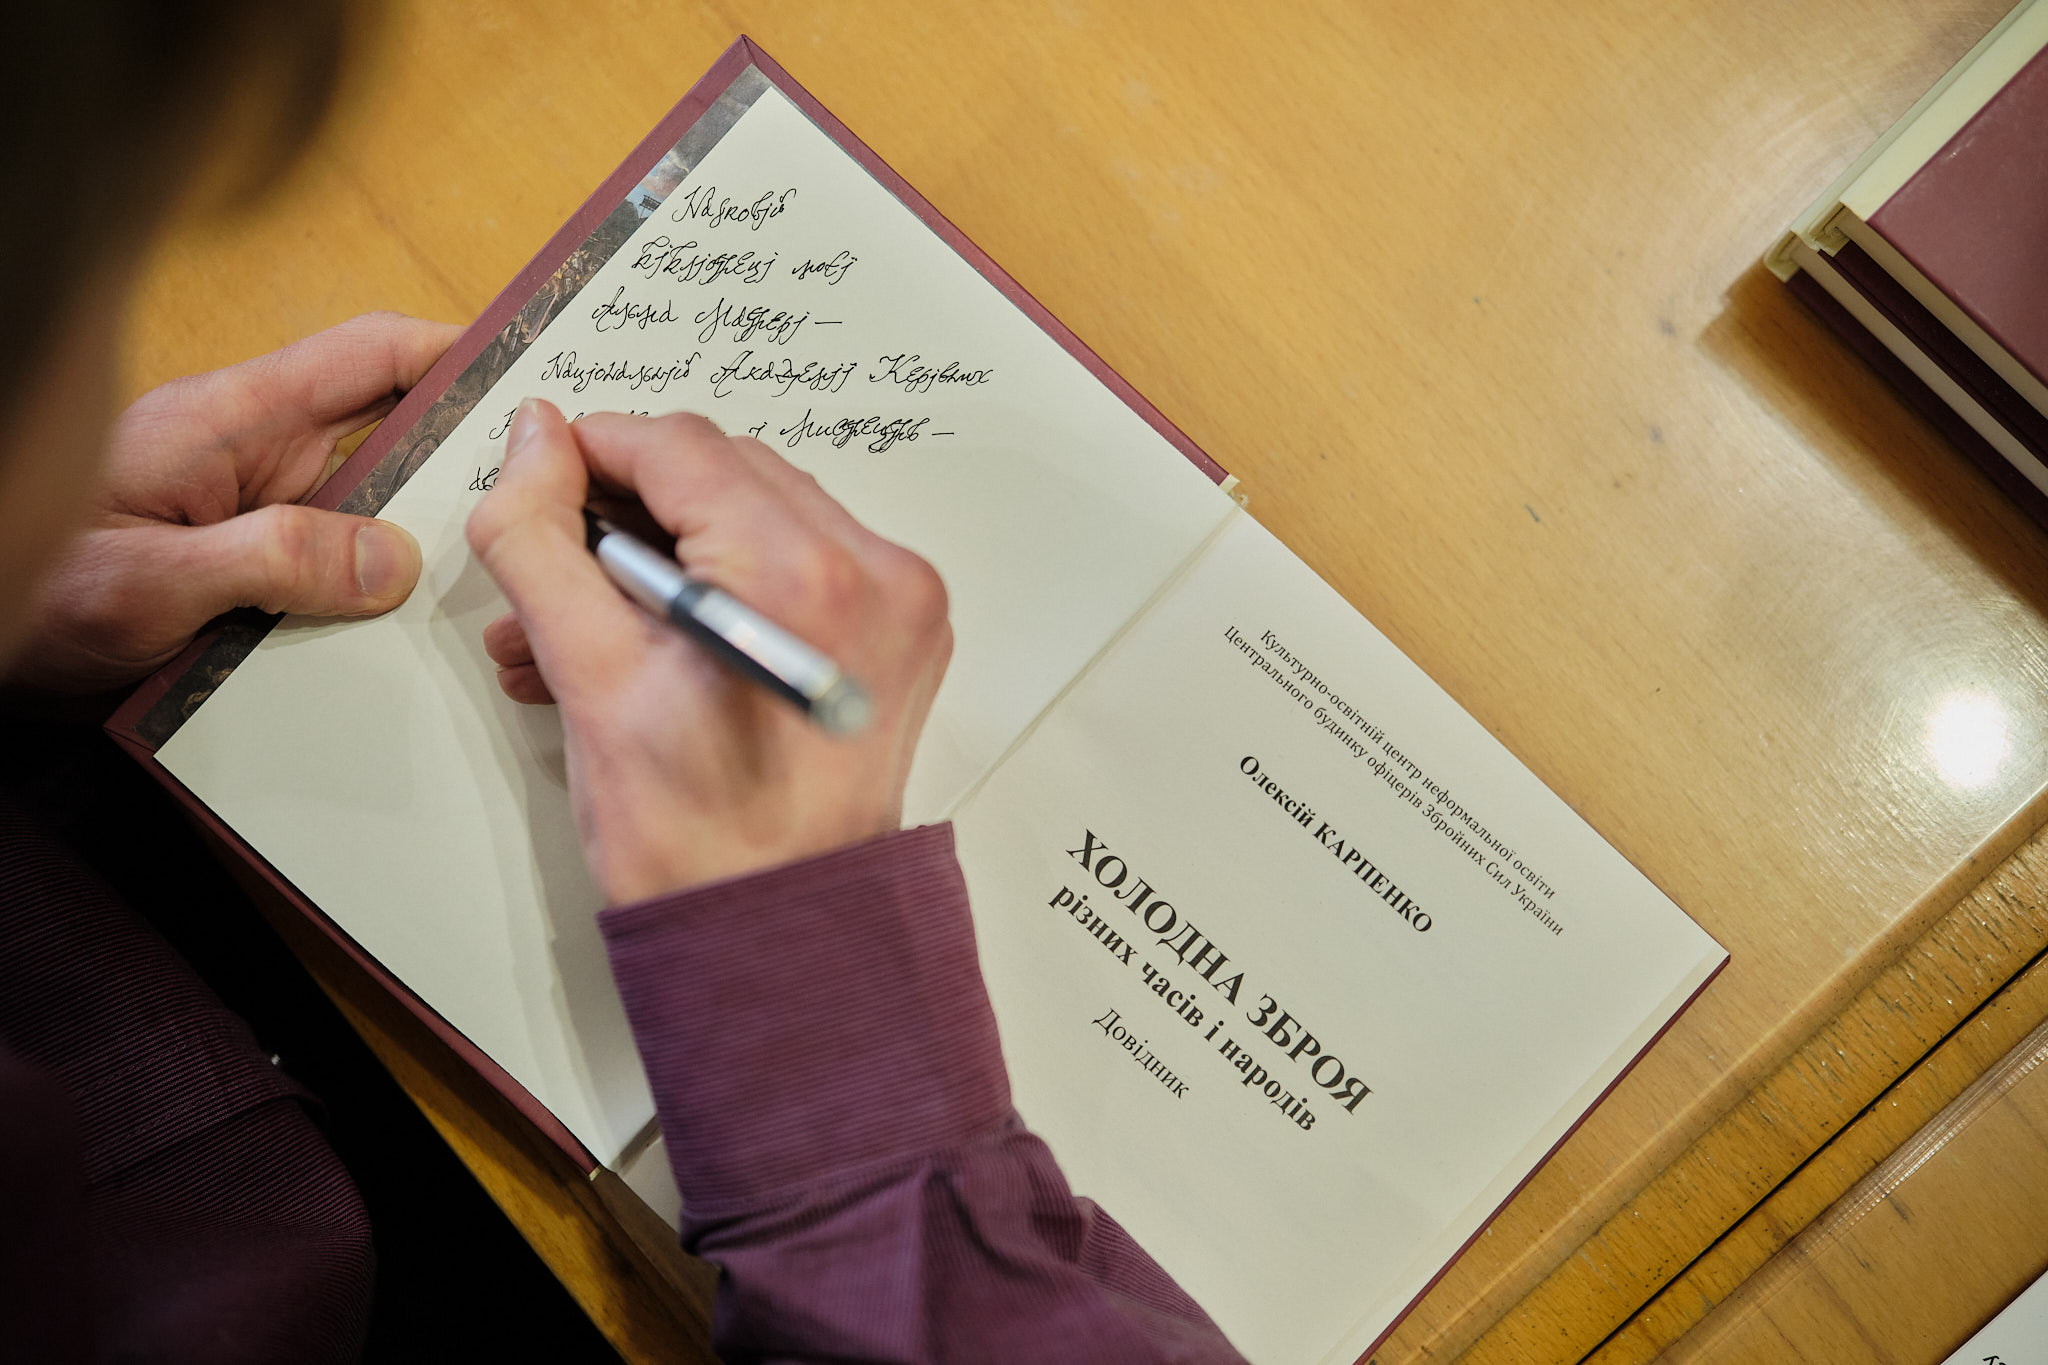 Науковій
бібліотеці моєї
Альма Матері —
Національній Академії Керівних
і Мистецтв —
Культурно-освітній центр неформальної освіти
Центрального будинку офіцерів Збройних Сил України
Олексій КАРПЕНКО
ХОЛОДНА ЗБРОЯ
різних часів і народів
Довідник